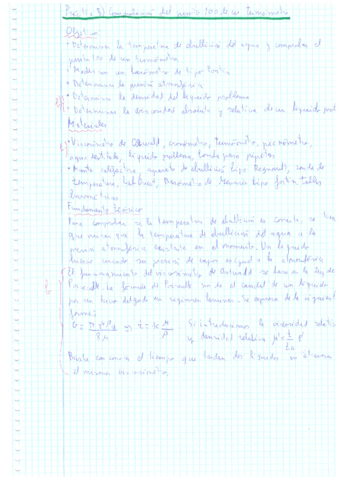 Práctica 3: Comprobación del punto 100 de un termómetro
Objetivo
• Determinar la temperatura de ebullición del agua y comprobar el
punto 100 de un termómetro
• Medir con un barómetro de tipo Fortin
• Determinar la presión atmosférica
• Determinar la densidad del líquido problema
• Determinar la viscosidad absoluta y relativa de un líquido prob
Materiales
• Viscosímetro de Ostwald, cronómetro, termómetro, picnómetro,
agua destilada, líquido problema, banda para pipetas
• Manta calefactora, aparato de ebullición tipo Regnault, sonda de
temperatura, Barómetro de Mercurio tipo fortin, tablas
barométricas
Fundamento teórico
Para comprobar si la temperatura de ebullición es correcta, se tiene
que la temperatura de ebullición del agua a la
presión atmosférica existente en el momento. Un líquido
cuando su presión de vapor es igual a la atmosférica
El funcionamiento del viscosímetro de Ostwald se basa en la ley de
Poiseuille. La fórmula de Poiseuille nos da el caudal de un líquido
por un tubo delgado en régimen laminar. Se expresa de la siguiente
forma:
Si introducimos la viscosidad relativa
y densidad relativa
Basta con conocer el tiempo que tardan dos líquidos en atravesar
el mismo viscosímetro